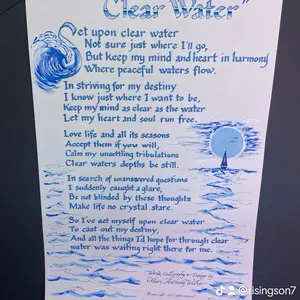 Clear Water"
Set upon clear water
Not sure just where I'll go,
But keep my mind and heart in harmony
Where peaceful waters flow.
In striving for my destiny
I know just where I want to be,
Keep my mind as clear as the water
Let my heart and soul run free.
Love life and all its seasons
Accept them if you will,
Calm my unsettling tribulations
Clear waters depths be still.
In search of unanswered questions
I suddenly caught a glare,
Be not blinded by these thoughts
Make life no crystal stare.
So I've set myself upon clear water
To cast out my destiny,
And all the things I'd hope for through clear
water was waiting right there for me.
Calligraphy & Design by
Anthony
@risingson7